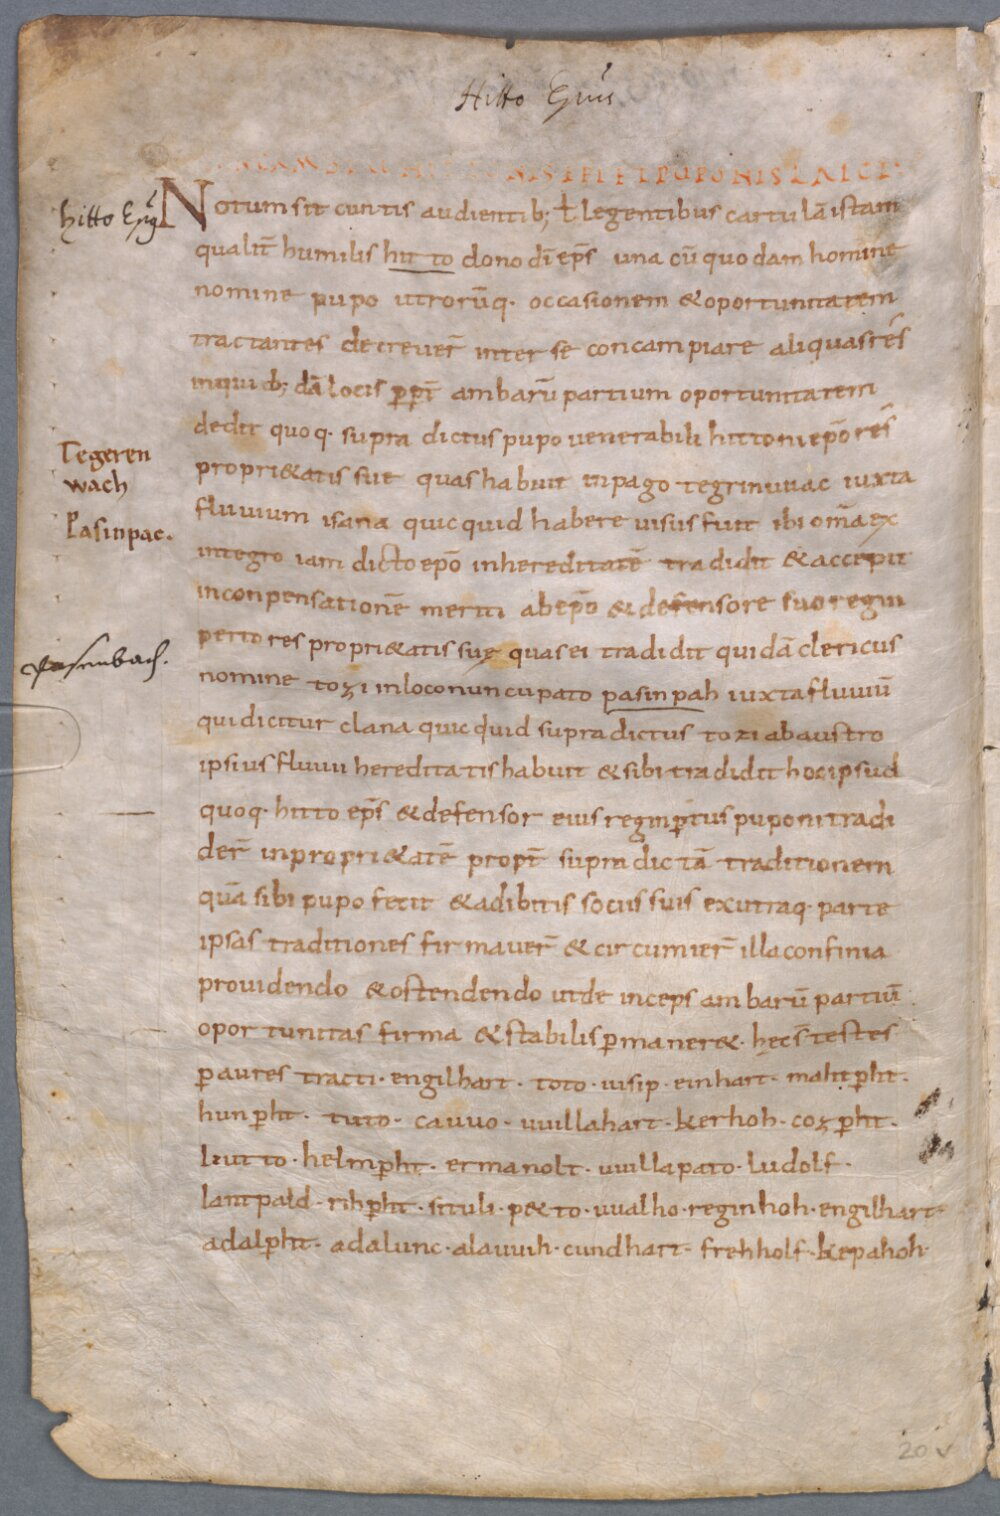 Hitto Epus
HITTONIS EPI ET POPONIS LAICI
hitto Epus
Notum sit cuntis audientib; ł legentibus cartulā istam
qualit̄ humilis hitto dono dī ep̄s una cū quodam homine
nomine pupo utrorūq· occasionem & oportunitatem
tractantes decreuer̄ inter se concampiare aliquas rēs
in quib; dā locis ꝓpt̄ ambarū partium oportunitatem
dedit quoq· supra dictus pupo uenerabili hittoni ep̄o rēs
propri&atis sue quas habuit in pago tegrinuuac iuxta
fluuium isana quicquid habere uisus fuit ibi om̄a ex
integro iam dicto ep̄o in hereditatē tradidit & accepit
in conpensationē meriti ab ep̄o & defensore suo regin
perto res propri&atis suę quas ei tradidit quidā clericus
nomine tozi in loco nuncupato pasinpah iuxta fluuiū
qui dicitur clana quicquid supradictus tozi ab austro
ipsius fluuii hereditatis habuit & sibi tradidit hoc ipsud
quoq· hitto ep̄s & defensor eius reginp̄tus puponi tradi
der̄ in propri&atē propt̄ supra dictā traditionem
quā sibi pupo fecit & adibitis sociis suis ex utraq· parte
ipsas traditiones firmauer̄ & circumier̄ illa confinia
prouidendo & ostendendo ut deinceps ambarū partiū
oportunitas firma & stabilis ꝑmaner&· hęc s̄ testes
ꝑ aures tracti· engilhart· toto· uisip· einhart· mahtꝑht·
hunꝑht· tuto· cauuo· uuillahart· kerhoh· cozꝑht·
liutto· helmꝑht· ermanolt· uuillapato· ludolf·
lantpald· rihꝑht· situli· p&to· uualho· reginhoh· engilhart·
adalꝑht· adalunc· alauuih· cundhart· frehholf· kepahoh·
Tegeren
wach
Pasinpac.
Pasenbach.
20 v